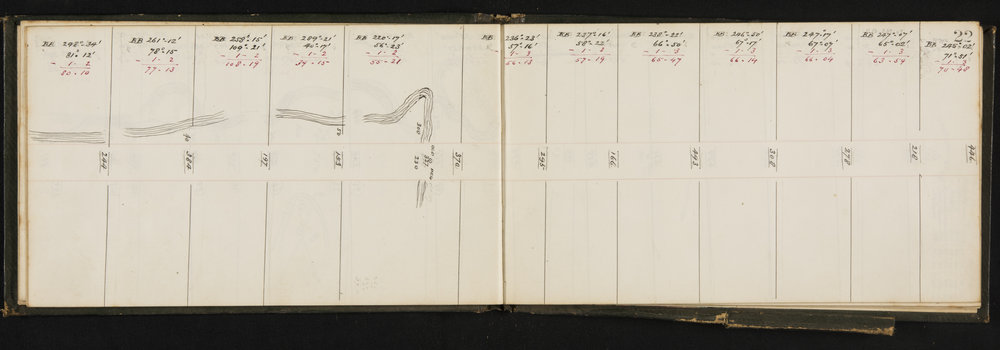 22
BB 248°-34'
81°-12'
- 1 - 2
80 - 10
BB 261°-12'
78°-15
- 1 - 2
77 - 13
BB 259°-15'
109°-21'
- 1 -
108 - 19
BB 289°-21'
40°-17'
- 1 - 2
39 - 15
BB 220°-17'
56°-23'
- 1 - 2
55 - 21
BB 236°-23'
57°-16'
- 1 - 3
56 - 13
BB 237°-16'
58°-22'
- 1 - 3
57 - 19
BB 238°-22'
66°-50'
- 1 - 3
65 - 47
BB 246°-50'
67°-17'
- 1 - 3
66 - 14
BB 247°-17'
67°-07'
- 1 - 3
66 - 04
BB 247°-07'
65°-02'
- 1 - 3
63 - 59
BB 245°-02'
71°-51'
- 1 - 3
70 - 48
50
300
244
384
197
153
230
370
295
166
493
308
278
218
446